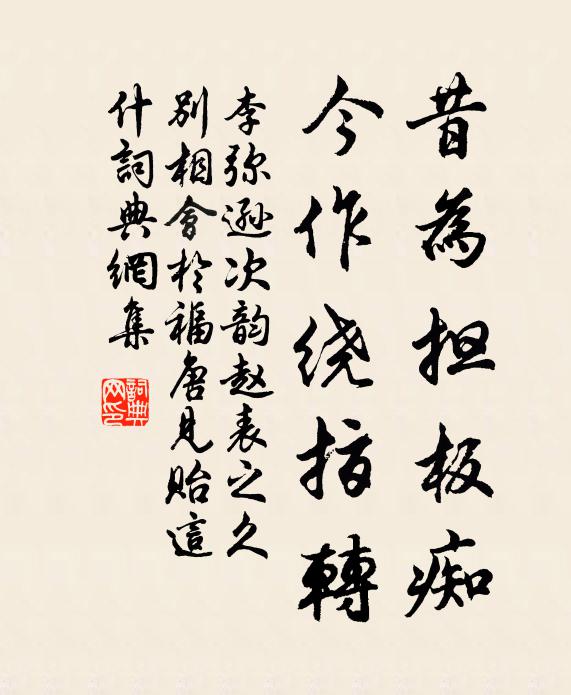 昔為担板痴
今作绕指轉
李弥逊次韵赵表之久
别相會於福唐見貽這
什詞典網集
詞典
网印